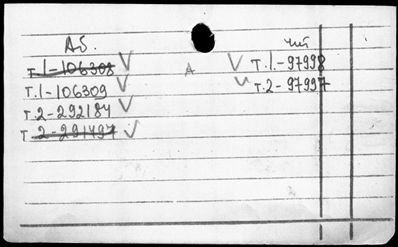 Аб.
т.1-106308
т.1-106309
т.2-292184
т.2-291497
А
чит
т.1-97998
т.2-97997